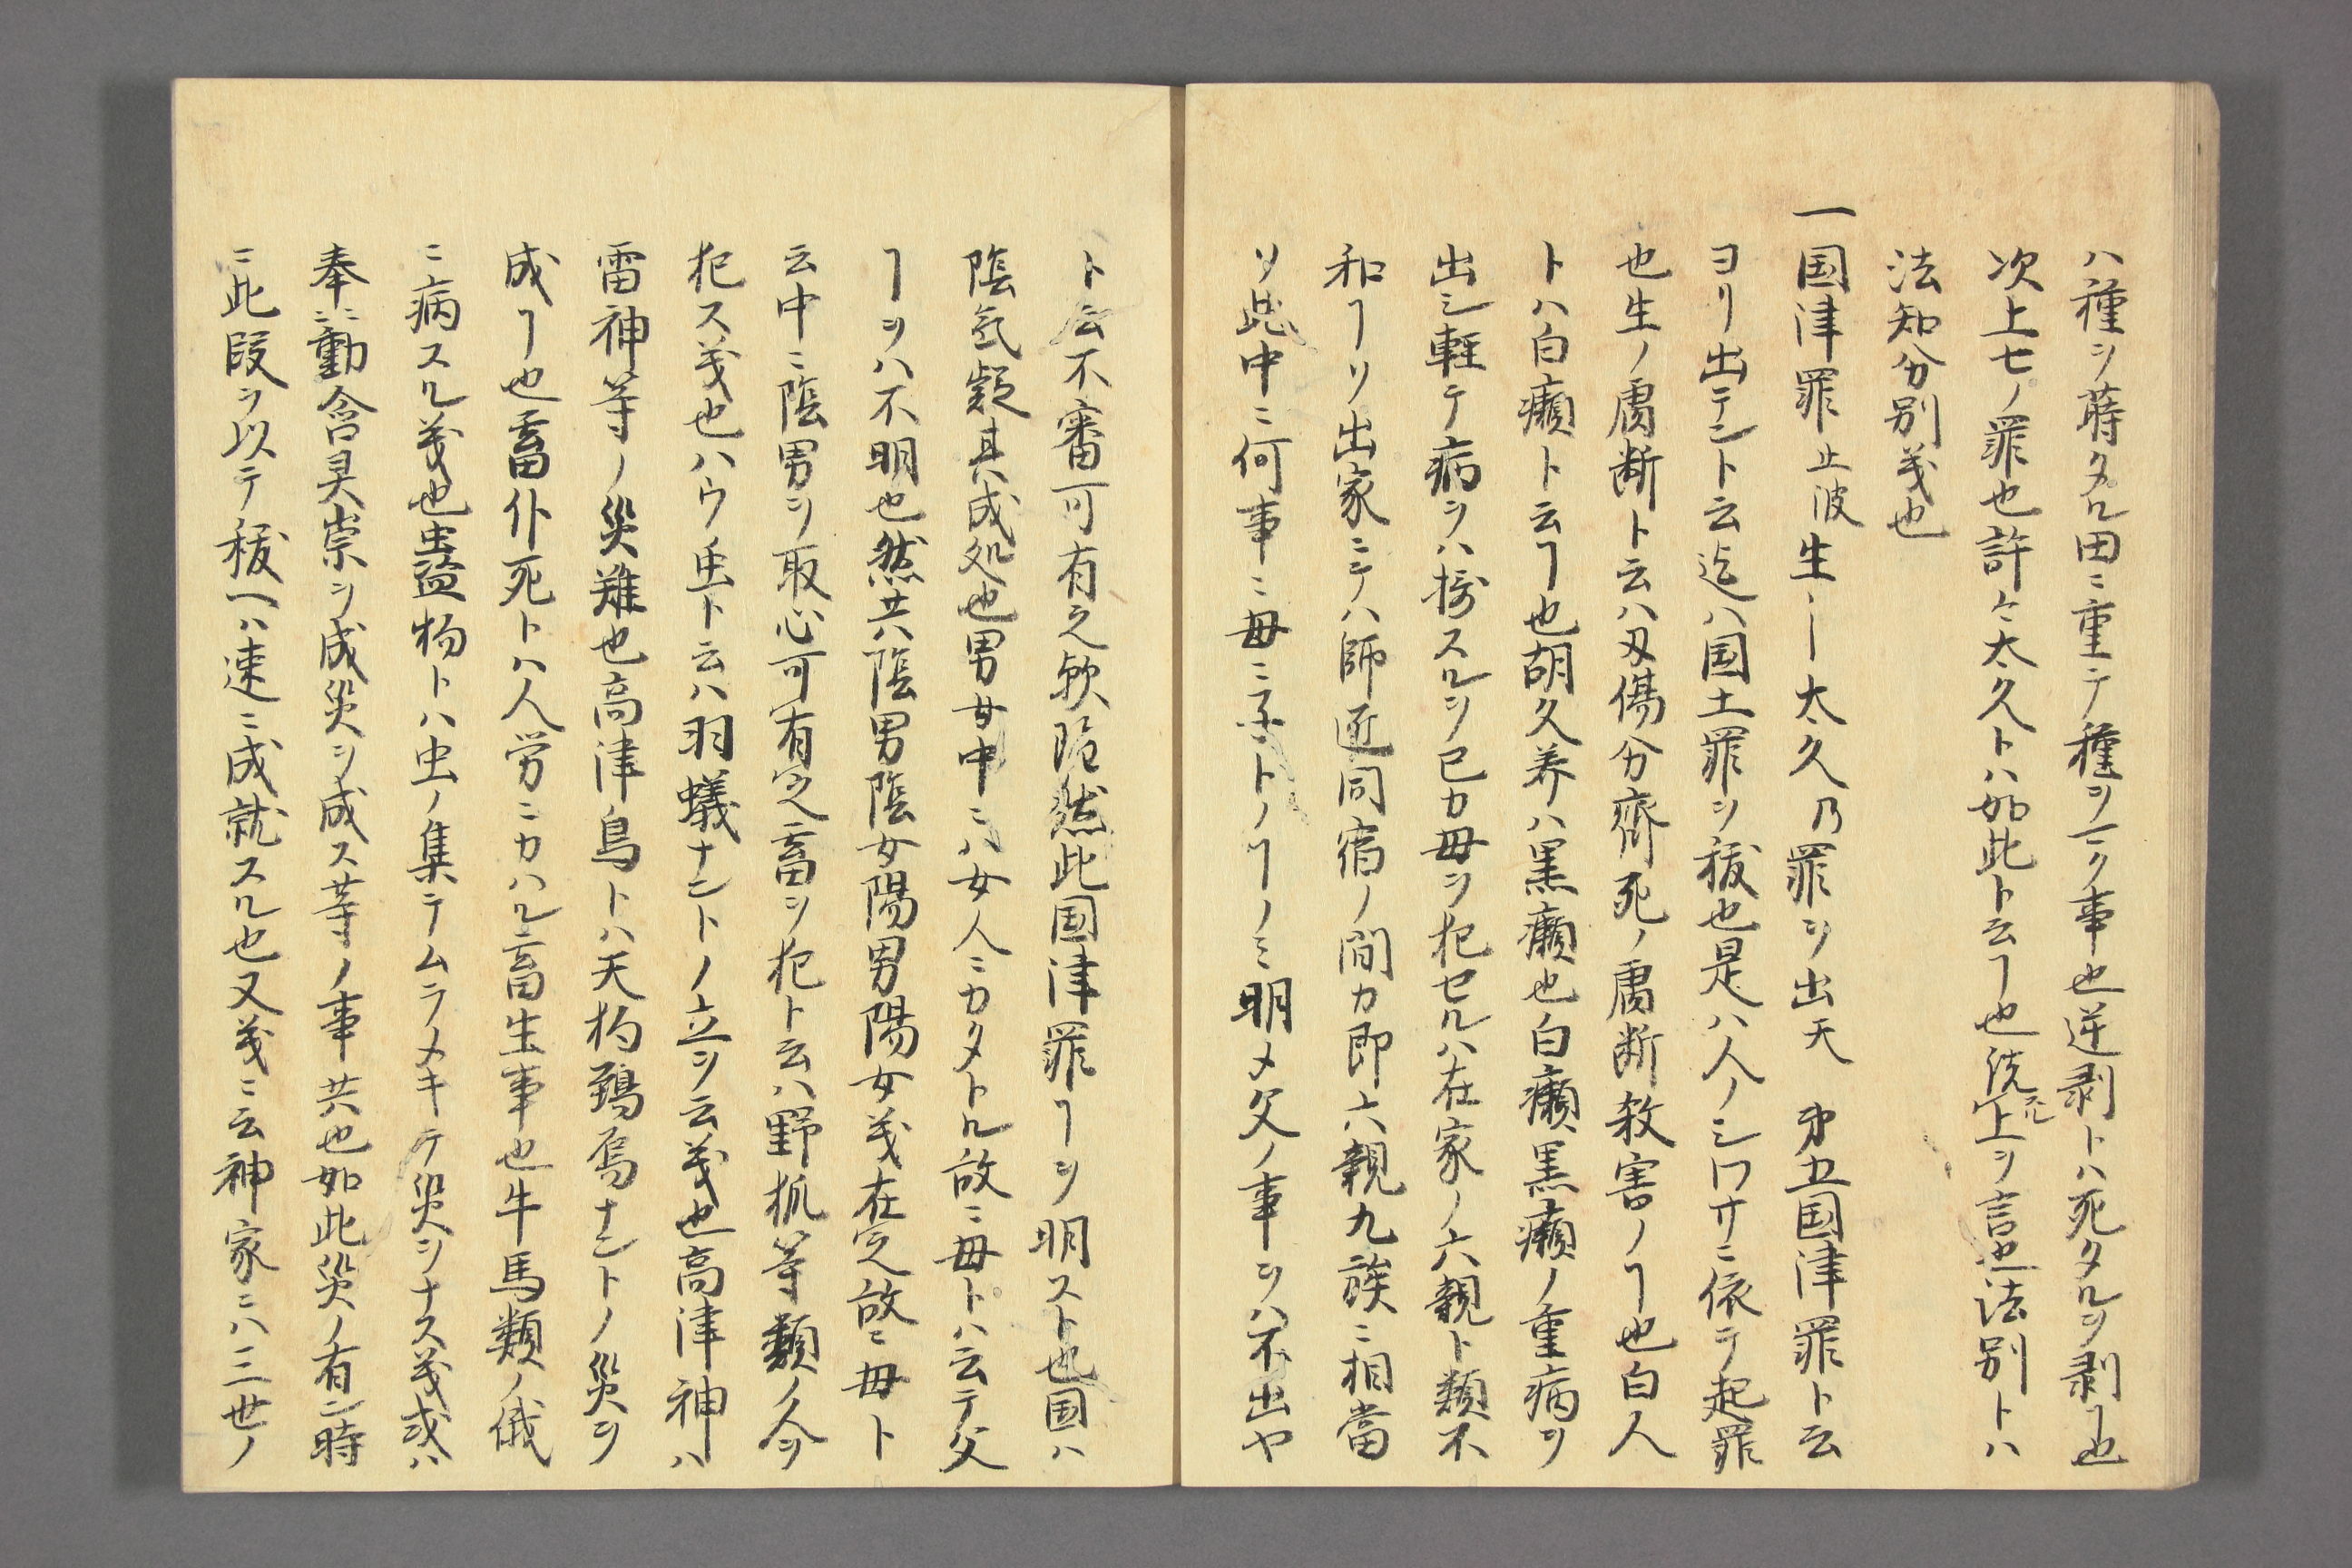 ハ種ヲ蒔タル田ニ重テ種ヲマク事也逆剥トハ死タルヲ剥ヿ也
次上七ノ罪也許々太久トハ如此ト云ヿ也流上ヲ言也法別トハ
法知分別義也
一国津罪止波生ーー太久乃罪ヲ出天 第五国津罪ト云
ヨリ出テント云迄ハ国土罪ヲ祓也是ハ人ノシワサニ依テ起罪
也生ノ膚断ト云ハ刃傷分齊死ノ膚断殺害ノヿ也白人
トハ白癩ト云ヿ也胡久养ハ黒癩也白癩黒癩ノ重病ヲ
出シ軽テ病ヲハスルヲ已カ母ヲ犯セルハ在家ノ六親ト類不
和ヿリ出家ニテハ師匠同宿ノ間カ即六親九族ニ相當
ソ此中ニ何事ニ母ニ子トノヿノミ明メ父ノ事ヲハ不出ヤ
ト云不審可有之欤陰然此国津罪ヿヲ明スト也国ハ
陰気凝其成処也男女中ニハ女人ニカタトル故ニ母トハ云テ父
ヿヲハ不明也然共陰男陰女陽男陽女義在之故ニ母ト
云中ニ陰男ヲ取心可有之畜ヲ犯ト云ハ野狐等類ノ人ヲ
犯ス義也ハウ虫ト云ハ羽蟻ナントノ立ヲ云義也高津神ハ
雷神等ノ災難也高津鳥トハ天狗鵄烏ナントノ災ヲ
成ヿ也畜仆死トハ人労ニカハル畜生事也牛馬類ノ儀
ニ病スル義也蠱物トハ虫ノ集テムラメキテ災ヲナス義或ハ
奉動含具崇ヲ成災ヲ成ス等ノ事共也如此災ノ有ン時
ニ此段ヲ以テ祓ヘハ速ニ成就スル也又義ニ云神家ニハ三世ノ